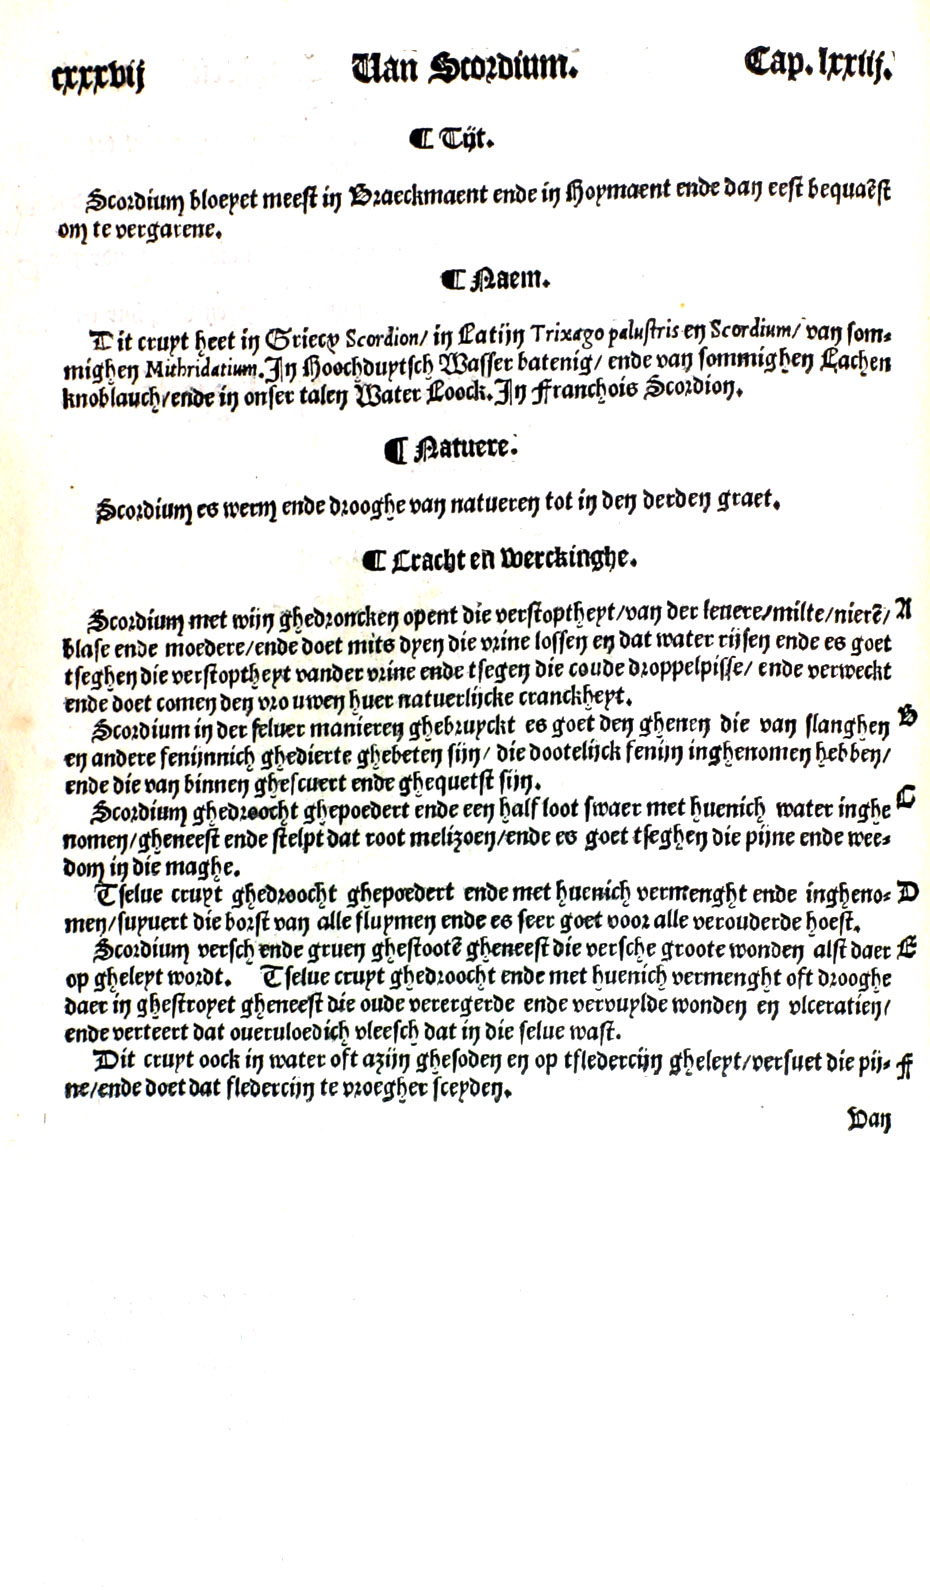 cxxxvij Van Scordium. Cap. lxxiij.
¶ Tijt.
Scordium bloeyet meest in Braeckmaent ende in Hoymaent ende dan eest bequaēst
om te vergarene.
¶ Naem.
Dit cruyt heet in Griecx Scordion/ in Latijn Trixago palustris en Scordium/ van som-
mighen Mithridatium. In Hoochduytsch Wasser batenig/ ende van sommighen Lachen
knoblauch/ende in onser talen Water Loock. In Franchois Scordion.
¶ Natuere.
Scordium es werm ende drooghe van natueren tot in den derden graet.
¶ Cracht en Werckinghe.
Scordium met wijn ghedroncken opent die verstoptheyt/van der levere/milte/nierē/ A
blase ende moedere/ende doet mits dyen die vrine lossen en dat water rijsen ende es goet
tseghen die verstoptheyt vander vrine ende tsegen die coude droppelpisse/ ende verweckt
ende doet comen den vrouwen huer natuerlijcke cranckheyt.
Scordium in der selver manieren ghebruyckt es goet den ghenen die van slanghen B
en andere fenijnnich ghedierte ghebeten sijn/ die dootelijck fenijn inghenomen hebben/
ende die van binnen ghescuert ende ghequetst sijn.
Scordium ghedroocht ghepoedert ende een half loot swaer met huenich water inghe C
nomen/gheneest ende stelpt dat root melizoen/ende es goet tseghen die pijne ende wee-
dom in die maghe.
Tselue cruyt ghedroocht ghepoedert ende met huenich vermenght ende ingheno- D
men/suyuert die borst van alle fluymen ende es seer goet voor alle verouderde hoest.
Scordium versch ende gruen ghestootē gheneest die versche groote wonden alst daer E
op gheleyt wordt. Tselue cruyt ghedroocht ende met huenich vermenght oft drooghe
daer in ghestroyet gheneest die oude verergerde ende vervuylde wonden en vlceratien/
ende verteert dat oueruloedich vleesch dat in die selue wast.
Dit cruyt oock in water oft azijn ghesoden en op tfledercijn gheleyt/versuet die pij- F
ne/ende doet dat fledercijn te vroegher sceyden.
Van